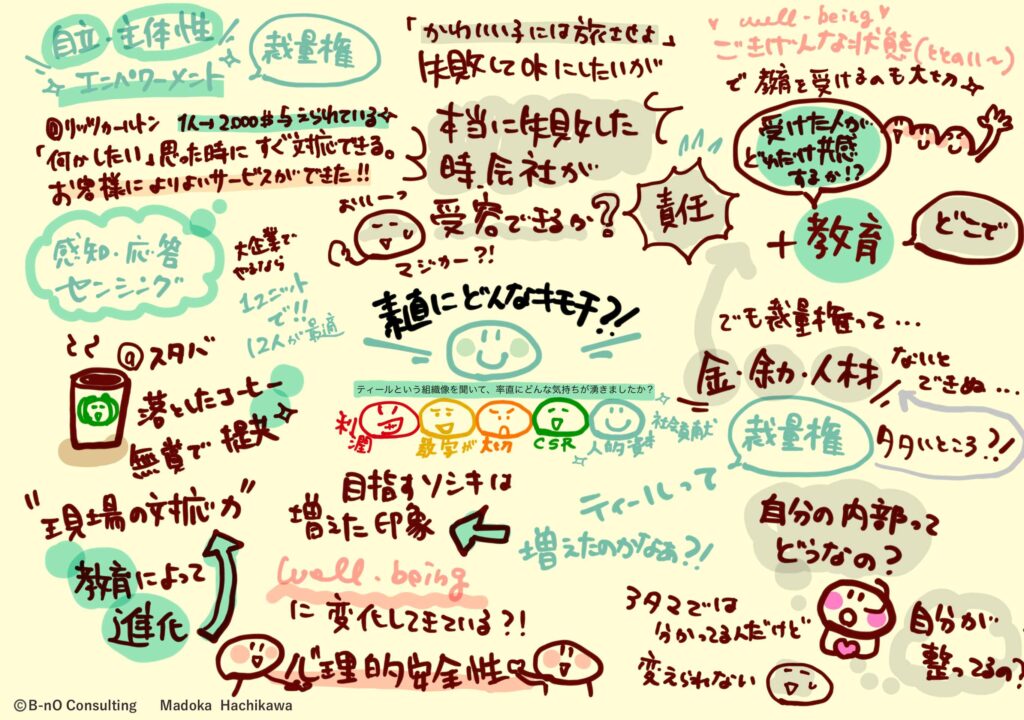 自立・主体性
エンパワーメント
裁量権
@リッツカールトン 1人→2,000$与えられている
「何かしたい」思った時にすぐ対応できる。
お客様によりよいサービスができた!!
感知・応答
センシング
大企業で
やるなら
1ユニット
で!!
12人が最適
@スタバ
落としたコーヒー
無償で提供
"現場の対応力"
教育によって
進化
「かわいい子には旅させよ」
失敗してOKにしたいが
本当に失敗した
時、会社が
受容できるか?
おいーっ
マジかー?!
責任
well-being
ごきげんな状態(ととのい〜)
で教育を受けるのも大切
受けた人が
どれだけ共感
するか!?
+教育
どこで
素直にどんなキモチ?!
ティールという組織像を聞いて、率直にどんな気持ちが湧きましたか?
利潤
数字が
大切
CSR
人的資本
社会貢献
でも裁量権って...
金・余力・人材
ないと
できぬ...
裁量権
タタいところ?!
目指すソシキは
増えた印象
ティールって
増えたのかなぁ?!
well-being
に変化してきている?!
心理的安全性
自分の内部って
どうなの?
アタマでは
分かってるんだけど
変えられない
自分が
整ってるの?
©B-nO Consulting Madoka Hachikawa